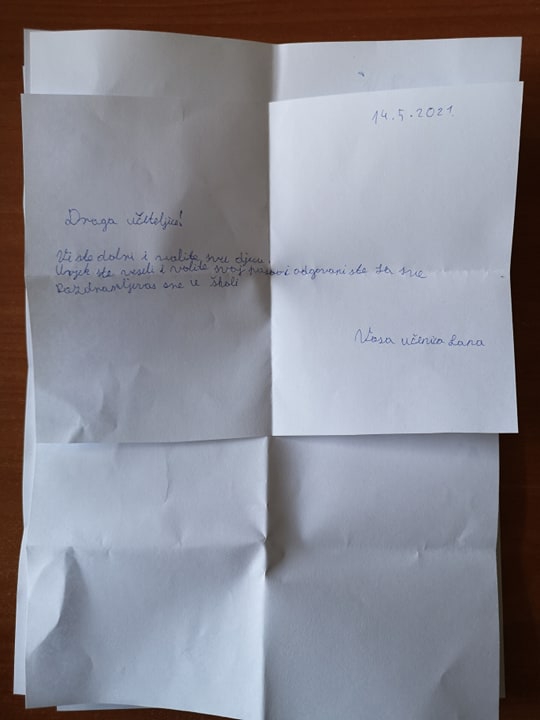 14.5.2021.
Draga učiteljice!
Vi ste dobri i volite svu djecu.
Uvjek ste veseli i volite svoj posao i odgovani ste za sve
Pozdravljevas sve u školi
Vasa učenica Lana